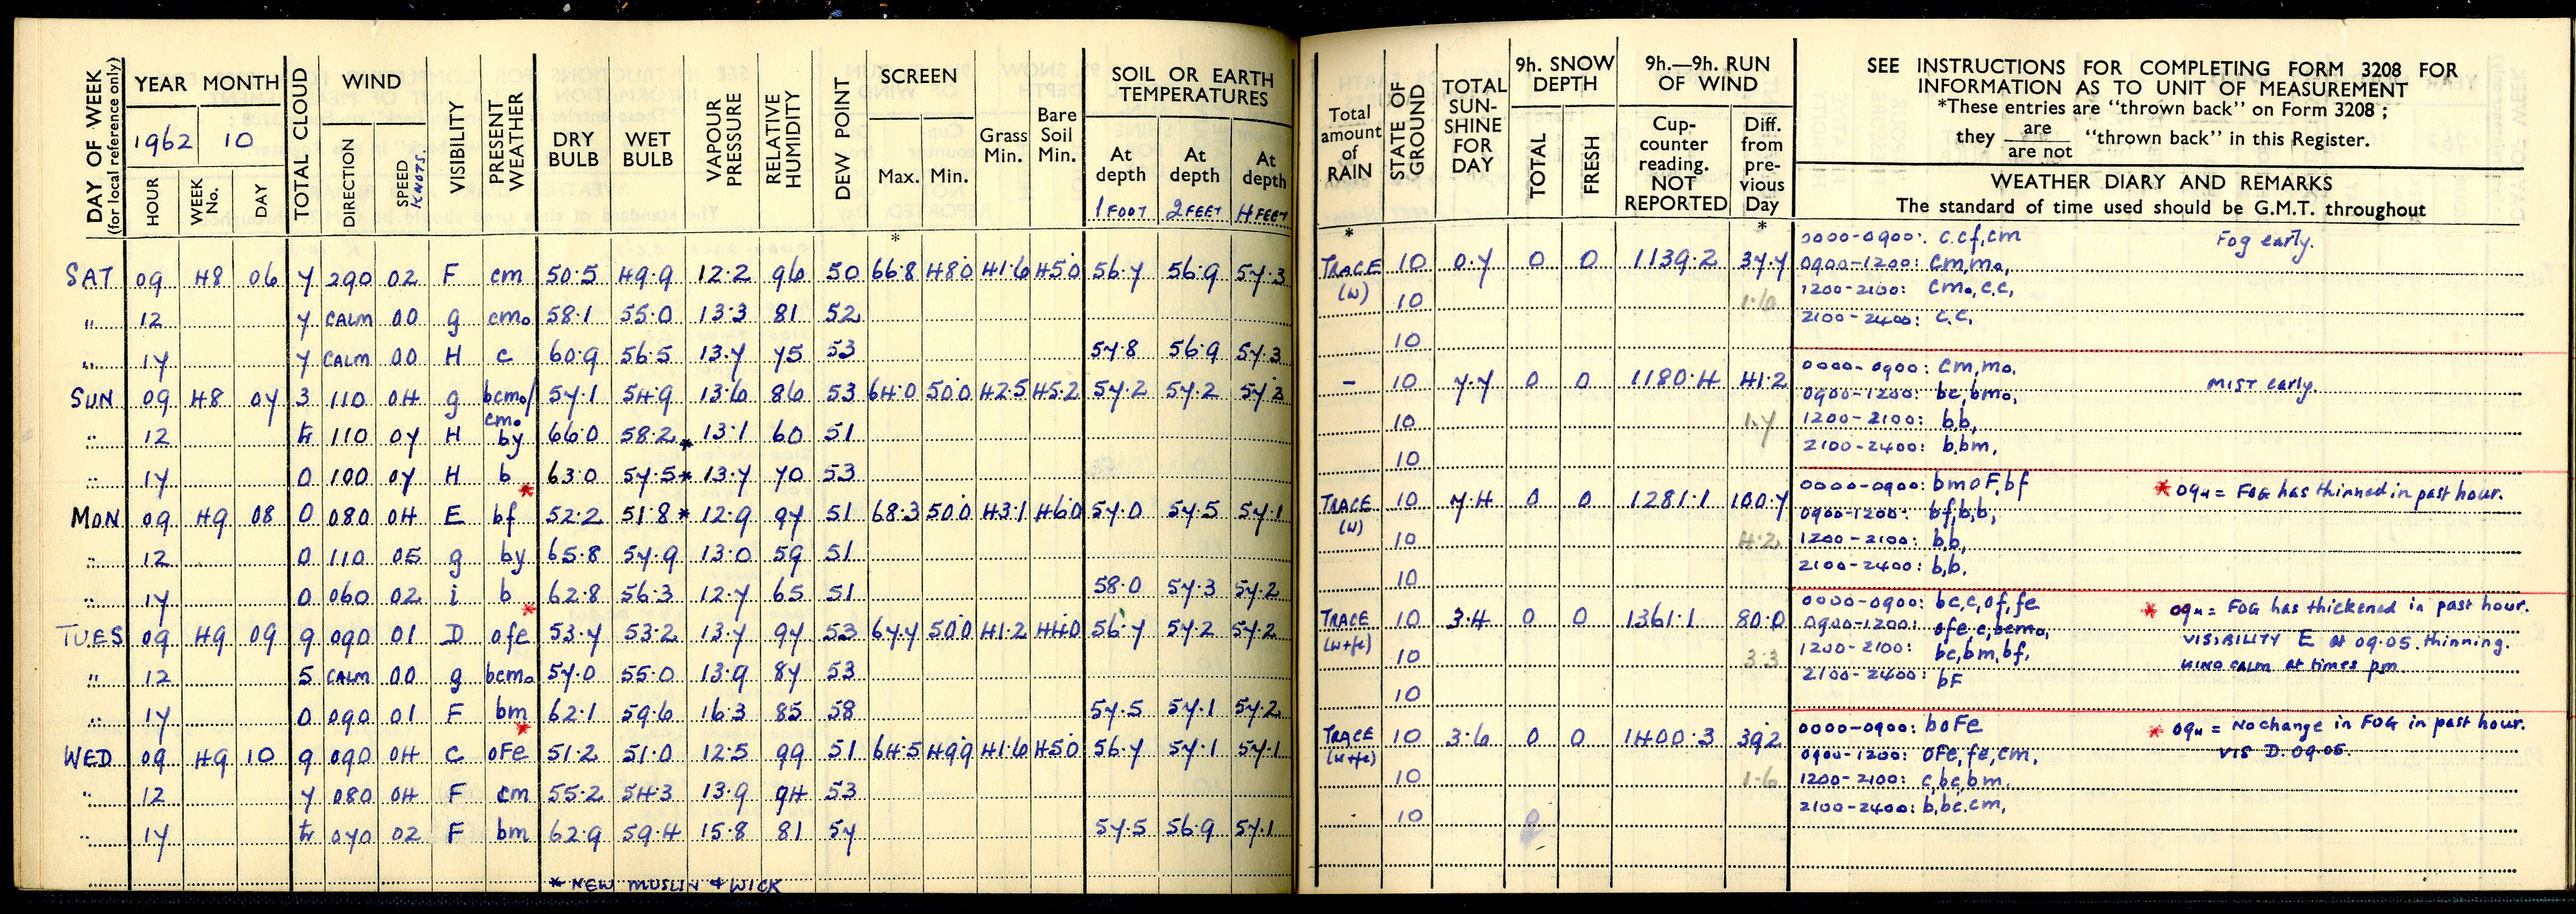 DAY OF WEEK
(for local reference only)
YEAR MONTH
1962 10
HOUR WEEK No. DAY
TOTAL CLOUD
WIND
DIRECTION SPEED KNOTS.
VISIBILITY
PRESENT WEATHER
DRY BULB
WET BULB
VAPOUR PRESSURE
RELATIVE HUMIDITY
DEW POINT
SCREEN
Max. Min.
Grass Min.
Bare Soil Min.
SOIL OR EARTH TEMPERATURES
At depth 1 FOOT
At depth 2 FEET
At depth 4 FEET
*
SAT 09 48 06 7 290 02 F cm 50.5 49.9 12.2 96 50 66.8 48.0 41.6 45.0 56.7 56.9 57.3
" 12 7 CALM 00 g cmo 58.1 55.0 13.3 81 52
" 17 7 CALM 00 H c 60.9 56.5 13.7 75 53 57.8 56.9 57.3
SUN 09 48 07 3 110 04 g bcmo/cmo 57.1 54.9 13.6 86 53 64.0 50.0 42.5 45.2 57.2 57.2 57.2
" 12 tr 110 07 H by 66.0 58.2* 13.1 60 51
" 17 0 100 07 H b 63.0 57.5* 13.7 70 53
MON 09 49 08 0 080 04 E bf* 52.2 51.8* 12.9 97 51 68.3 50.0 43.1 46.0 57.0 57.5 57.1
" 12 0 110 05 g by 65.8 57.9 13.0 59 51
" 17 0 060 02 i b 62.8 56.3 12.7 65 51 58.0 57.3 57.2
TUES 09 49 09 9 090 01 D ofe* 53.7 53.2 13.7 97 53 67.7 50.0 41.2 44.0 56.7 57.2 57.2
" 12 5 CALM 00 g bcmo 57.0 55.0 13.9 87 53
" 17 0 090 01 F bm 62.1 59.6 16.3 85 58 57.5 57.1 57.2
WED 09 49 10 9 090 04 C oFe* 51.2 51.0 12.5 99 51 64.5 49.9 41.6 45.0 56.7 57.1 57.1
" 12 7 080 04 F cm 55.2 54.3 13.9 94 53
" 17 tr 070 02 F bm 62.9 59.4 15.8 81 57 57.5 56.9 57.1
* NEW MUSLIN & WICK
Total amount of RAIN
STATE OF GROUND
TOTAL SUN-SHINE FOR DAY
9h. SNOW DEPTH
TOTAL FRESH
9h.—9h. RUN OF WIND
Cup-counter reading. NOT REPORTED
Diff. from pre-vious Day
SEE INSTRUCTIONS FOR COMPLETING FORM 3208 FOR
INFORMATION AS TO UNIT OF MEASUREMENT
*These entries are "thrown back" on Form 3208 ;
they are / are not "thrown back" in this Register.
WEATHER DIARY AND REMARKS
The standard of time used should be G.M.T. throughout
* *
TRACE (w) 10 0.7 0 0 1139.2 37.7
10 1.6
10
0000-0900: c.cf,cm Fog early.
0900-1200: cm,mo,
1200-2100: cmo,c,c,
2100-2400: c.c,
- 10 7.7 0 0 1180.4 41.2
10 1.7
10
0000-0900: cm,mo, MIST early.
0900-1200: bc,bmo,
1200-2100: b,b,
2100-2400: b,bm,
TRACE (w) 10 7.4 0 0 1281.1 100.7
10 4.2
10
0000-0900: bmoF,bf * 09H = FOG has thinned in past hour.
0900-1200: bf,b,b,
1200-2100: b,b,
2100-2400: b,b.
TRACE (w+fe) 10 3.4 0 0 1361.1 80.0
10 3.3
10
0000-0900: bc,c,of,fe * 09H = FOG has thickened in past hour.
0900-1200: ofe,c,bcmo, VISIBILITY E at 09.05. thinning.
1200-2100: bc,bm,bf, WIND CALM at times pm
2100-2400: bF
TRACE (w+fe) 10 3.6 0 0 1400.3 39.2
10 1.6
10
0000-0900: boFe * 09H = No change in FOG in past hour.
0900-1200: OFe,fe,cm, VIS D. 09.05.
1200-2100: c,bc,bm.
2100-2400: b,bc.cm,